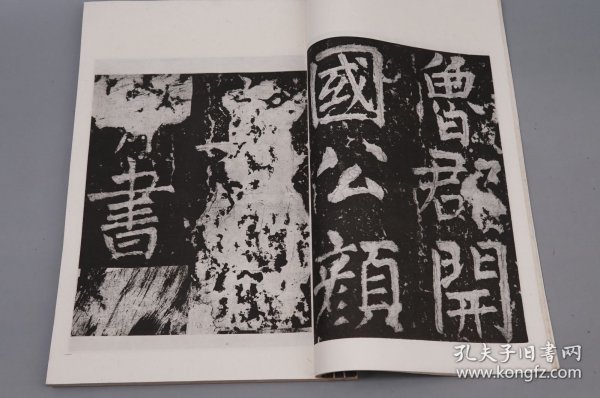 魯郡開
國公顏
書
孔夫子旧书网
www.kongfz.com